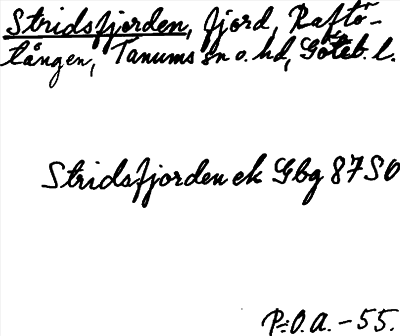 Stridsfjorden, fjord, Raftö-
tången, Tanums sn o. hd, Göteb. l.
Stridsfjorden ek Gbg 87 SO
P.O.A. - 55.